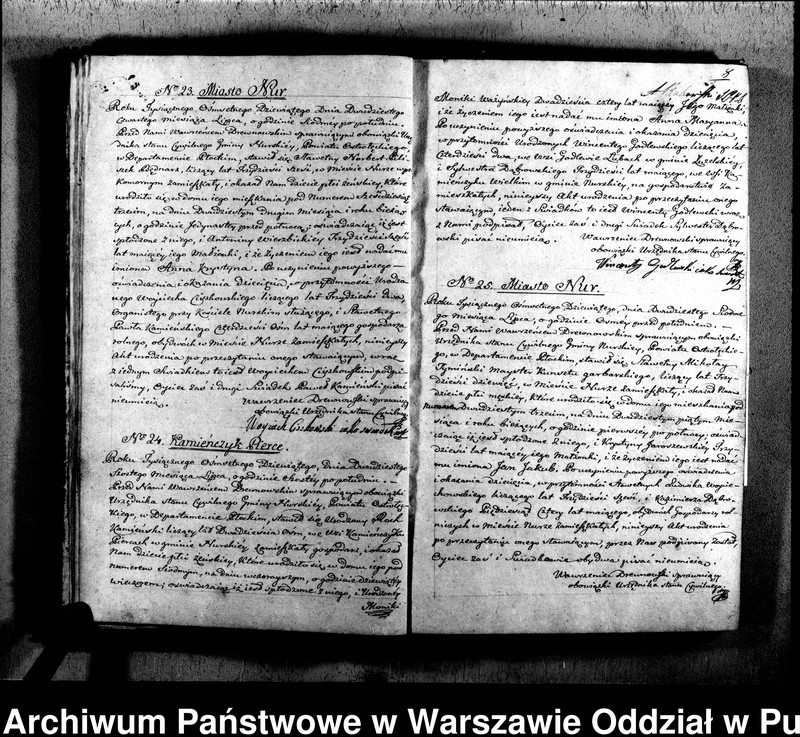 Nº 23. Miasto Nur
Roku Tysiącznego Osmsetnego Dziewiątego Dnia Dwudziestego
Czwartego Miesiąca Lipca, o godzinie siodmey po południu.
Przed Nami Wawrzeńcem Drewnowskim sprawuiącym obowiązki Urzę
dnika stanu Cywilnego Gminy Nurskiey, Powiatu Ostrołęckiego
w Departamencie Płockim, stawił się Sławetny Norbert
liczący lat Trzydzieści Sześć, w Mieście Nurze
zamieszkały, i okazał Nam dziecie płci żeńskiey, które
urodziło się w domu iego mieszkania pod Numerem
trzecim, na dniu Dwudziestym Drugim Miesiąca i roku bieżą
cych, o godzinie Jedynastey przed północą, oświadczaiąc iż iest
spłodzone z niego, i Antoniny Wierzbickiey Trzydzieści
lat maiącey iego Małżonki, i że życzeniem iego iest nadać mu
imiona Anna Krystyna. Po uczynieniu powyższego
oświadczenia i okazania dziecięcia, w przytomności Urodzo
nego Woyciecha Ciszkowskiego liczącego lat Trzydzieści dwa,
Organisty przy Kościele Nurskim służącego, i Sławetnego
Pawła Kamieńskiego Czterdzieści Osm lat maiącego gospodarza
rolnego, obydwuch w Mieście Nurze Zamieszkałych, ninieyszy
Akt urodzenia po przeczytaniu onego stawaiącym, wraz
z iednym Swiadkiem to iest Woyciechem Ciszkowskim podpi
saliśmy, Oyciec zaś i drugi Swiadek Paweł Kamieński pisać
nieumieią.
Wawrzeniec Drewnowski sprawuiący
obowiązki Urzędnika stanu Cywilnego
Woyciech Ciszkowski iako swiadek
Nº 24. Kamieńczyk Pierce.
Roku Tysiącznego Osmsetnego Dziewiątego, dnia Dwudziestego
Szostego Miesiąca Lipca, o godzinie szostey po południu.
Przed Nami Wawrzeńcem Drewnowskim sprawuiącym obowiązki
Urzędnika stanu Cywilnego Gminy Nurskiey, Powiatu Ostrołęc
kiego, w Departamencie Płockim, stawił się Urodzony Roch
Kamieński liczący lat Dwadzieścia Osm, we Wsi Kamieńczyku
Piercach w gminie Nurskiey Zamieszkały gospodarz, i okazał
Nam dziecie płci żeńskiey, które urodziło się w domu iego pod
numerem Siodmym, na dniu wczorayszym, o godzinie dziewiątey
wieczorem; oświadczaiąc iż iest spłodzone z niego, i Urodzoney
Moniki
Moniki Ważyńskiey Dwadzieścia cztery lat maiącey iego Małżonki,
i że życzeniem iego iest nadać mu imiona Anna Maryanna.
Po uczynieniu powyższego oświadczenia i okazania dziecięcia,
w przytomności Urodzonych Wincentego Godlewskiego liczącego lat
Czterdzieści dwa, we Wsi Godlewie Łubach w gminie
i Sylwestra Dąbrowskiego Trzydzieści lat maiącego, we Wsi Ka
mieńczyku Wielkim w gminie Nurskiey, na gospodarstwie Za
mieszkałych, ninieyszy Akt urodzenia po przeczytaniu onego
Stawaiącym, ieden z Swiadków to iest Wincenty Godlewski wraz
z Nami podpisał, Oyciec zaś i drugi Swiadek Sylwester Dąbro
wski pisać nieumieią.
Wawrzeniec Drewnowski sprawuiący
obowiązki Urzędnika stanu Cywilnego.
Wincenty Godlewski iako swiadek
Nº 25. Miasto Nur.
Roku Tysiącznego Osmsetnego Dziewiątego, dnia Dwudziestego Siodme
go Miesiąca Lipca, o godzinie Osmey przed południem.
Przed Nami Wawrzeńcem Drewnowskim sprawuiącym obowiązki
Urzędnika stanu Cywilnego Gminy Nurskiey, Powiatu Ostrołęckie
go, w Departamencie Płockim, stawił się Sławetny Mikołay
Tymiński Mayster Kunsztu garbarskiego, liczący lat Trzy
dzieści dziewięć, w Mieście Nurze zamieszkały, i okazał Nam
dziecie płci męzkiey, które urodziło się w domu iego mieszkania pod
Numerem Dwudziestym trzecim, na dniu Dwudziestym piątym Mie
siąca i roku bieżących, o godzinie pierwszey po północy, oświad
czaiąc iż iest spłodzone z niego, i Krystyny Jaroszewskiey Trzy
dzieści lat maiącey iego Małżonki, i że życzeniem iego iest nadać
mu imiona Jan Jakub. Po uczynieniu powyższego oświadczenia
i okazania dziecięcia, w przytomności Sławetnych Ludwika Woycie
chowskiego liczącego lat Trzydzieści Sześć, i Kazimierza Dąbro
wskiego Pięćdziesiąt Cztery lat maiącego, obydwuch Gospodarzy rol
niczych w Mieście Nurze Zamieszkałych, ninieyszy Akt urodzenia
po przeczytaniu onego stawaiącym, przez Nas podpisany został,
Oyciec zaś i Swiadkowie obydwa pisać nieumieią.
Wawrzeniec Drewnowski sprawuiący
obowiązki Urzędnika stanu Cywilnego.
Archiwum Państwowe w Warszawie Oddział w Pu